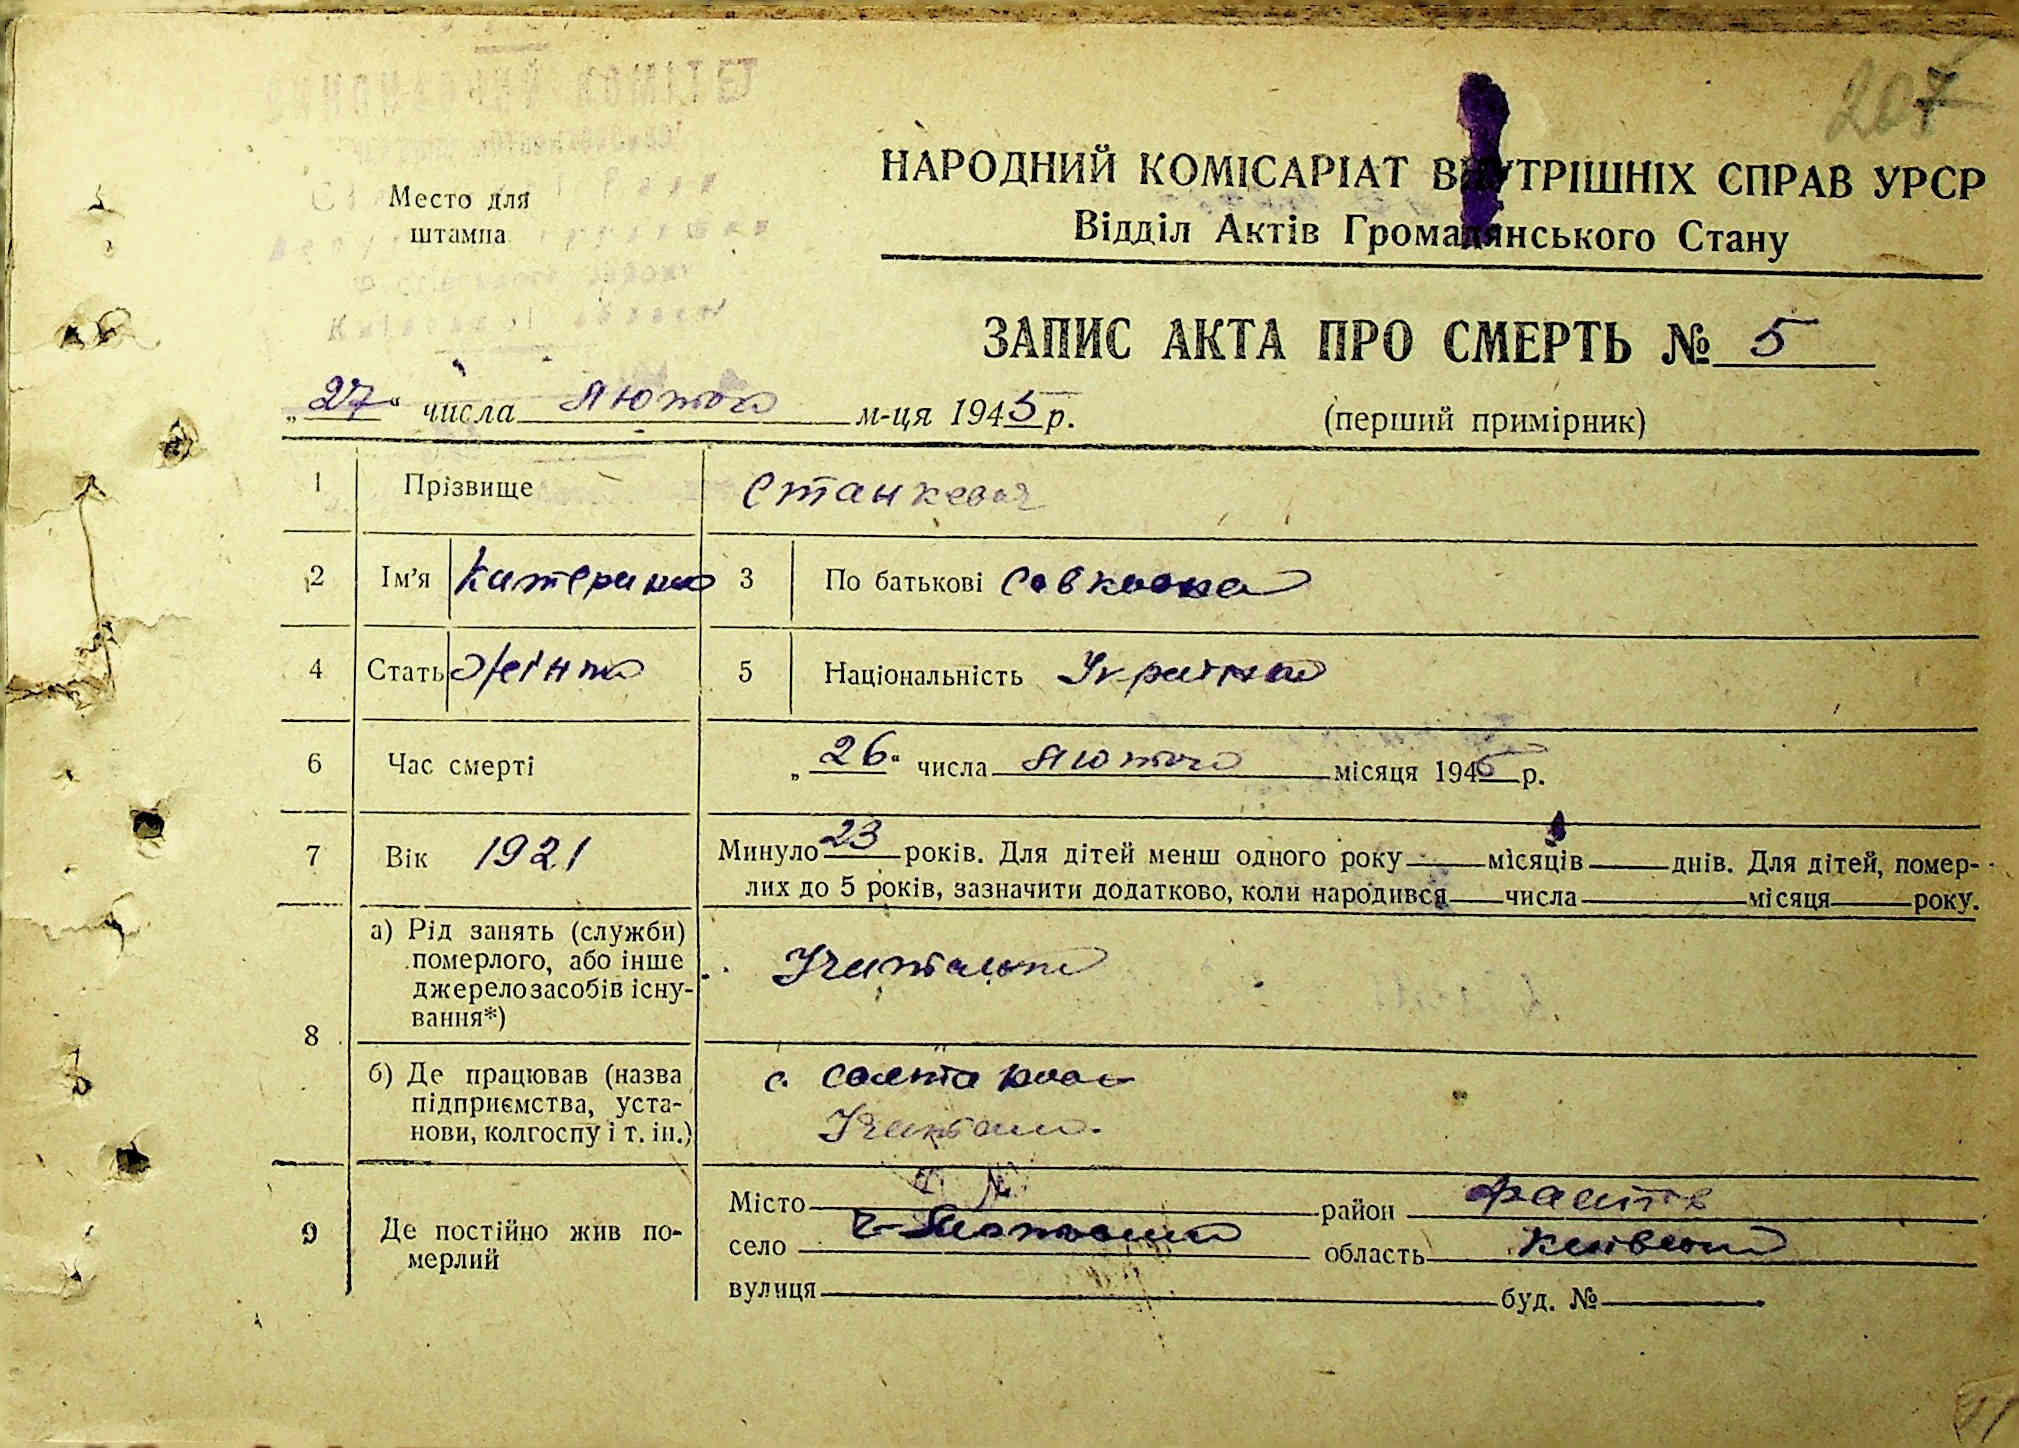 207
Место для
штампа
НАРОДНИЙ КОМІСАРІАТ ВНУТРІШНІХ СПРАВ УРСР
Відділ Актів Громадянського Стану
ЗАПИС АКТА ПРО СМЕРТЬ № 5
„27“ числа лютого м-ця 1945 р.
(перший примірник)
1 Прізвище Станкевич
2 Ім'я Катерина 3 По батькові Савковна
4 Стать жінка 5 Національність Українка
6 Час смерті „26“ числа лютого місяця 1945 р.
7 Вік 1921 Минуло 23 років. Для дітей менш одного року місяців днів. Для дітей, помер-
лих до 5 років, зазначити додатково, коли народився числа місяця року.
8 а) Рід занять (служби)
померлого, або інше
джерело засобів існу-
вання*)
Учителька
б) Де працював (назва
підприємства, уста-
нови, колгоспу і т. ін.)
с.
9 Де постійно жив по-
мерлий
Місто район Фастів
село область Київська
вулиця буд. №